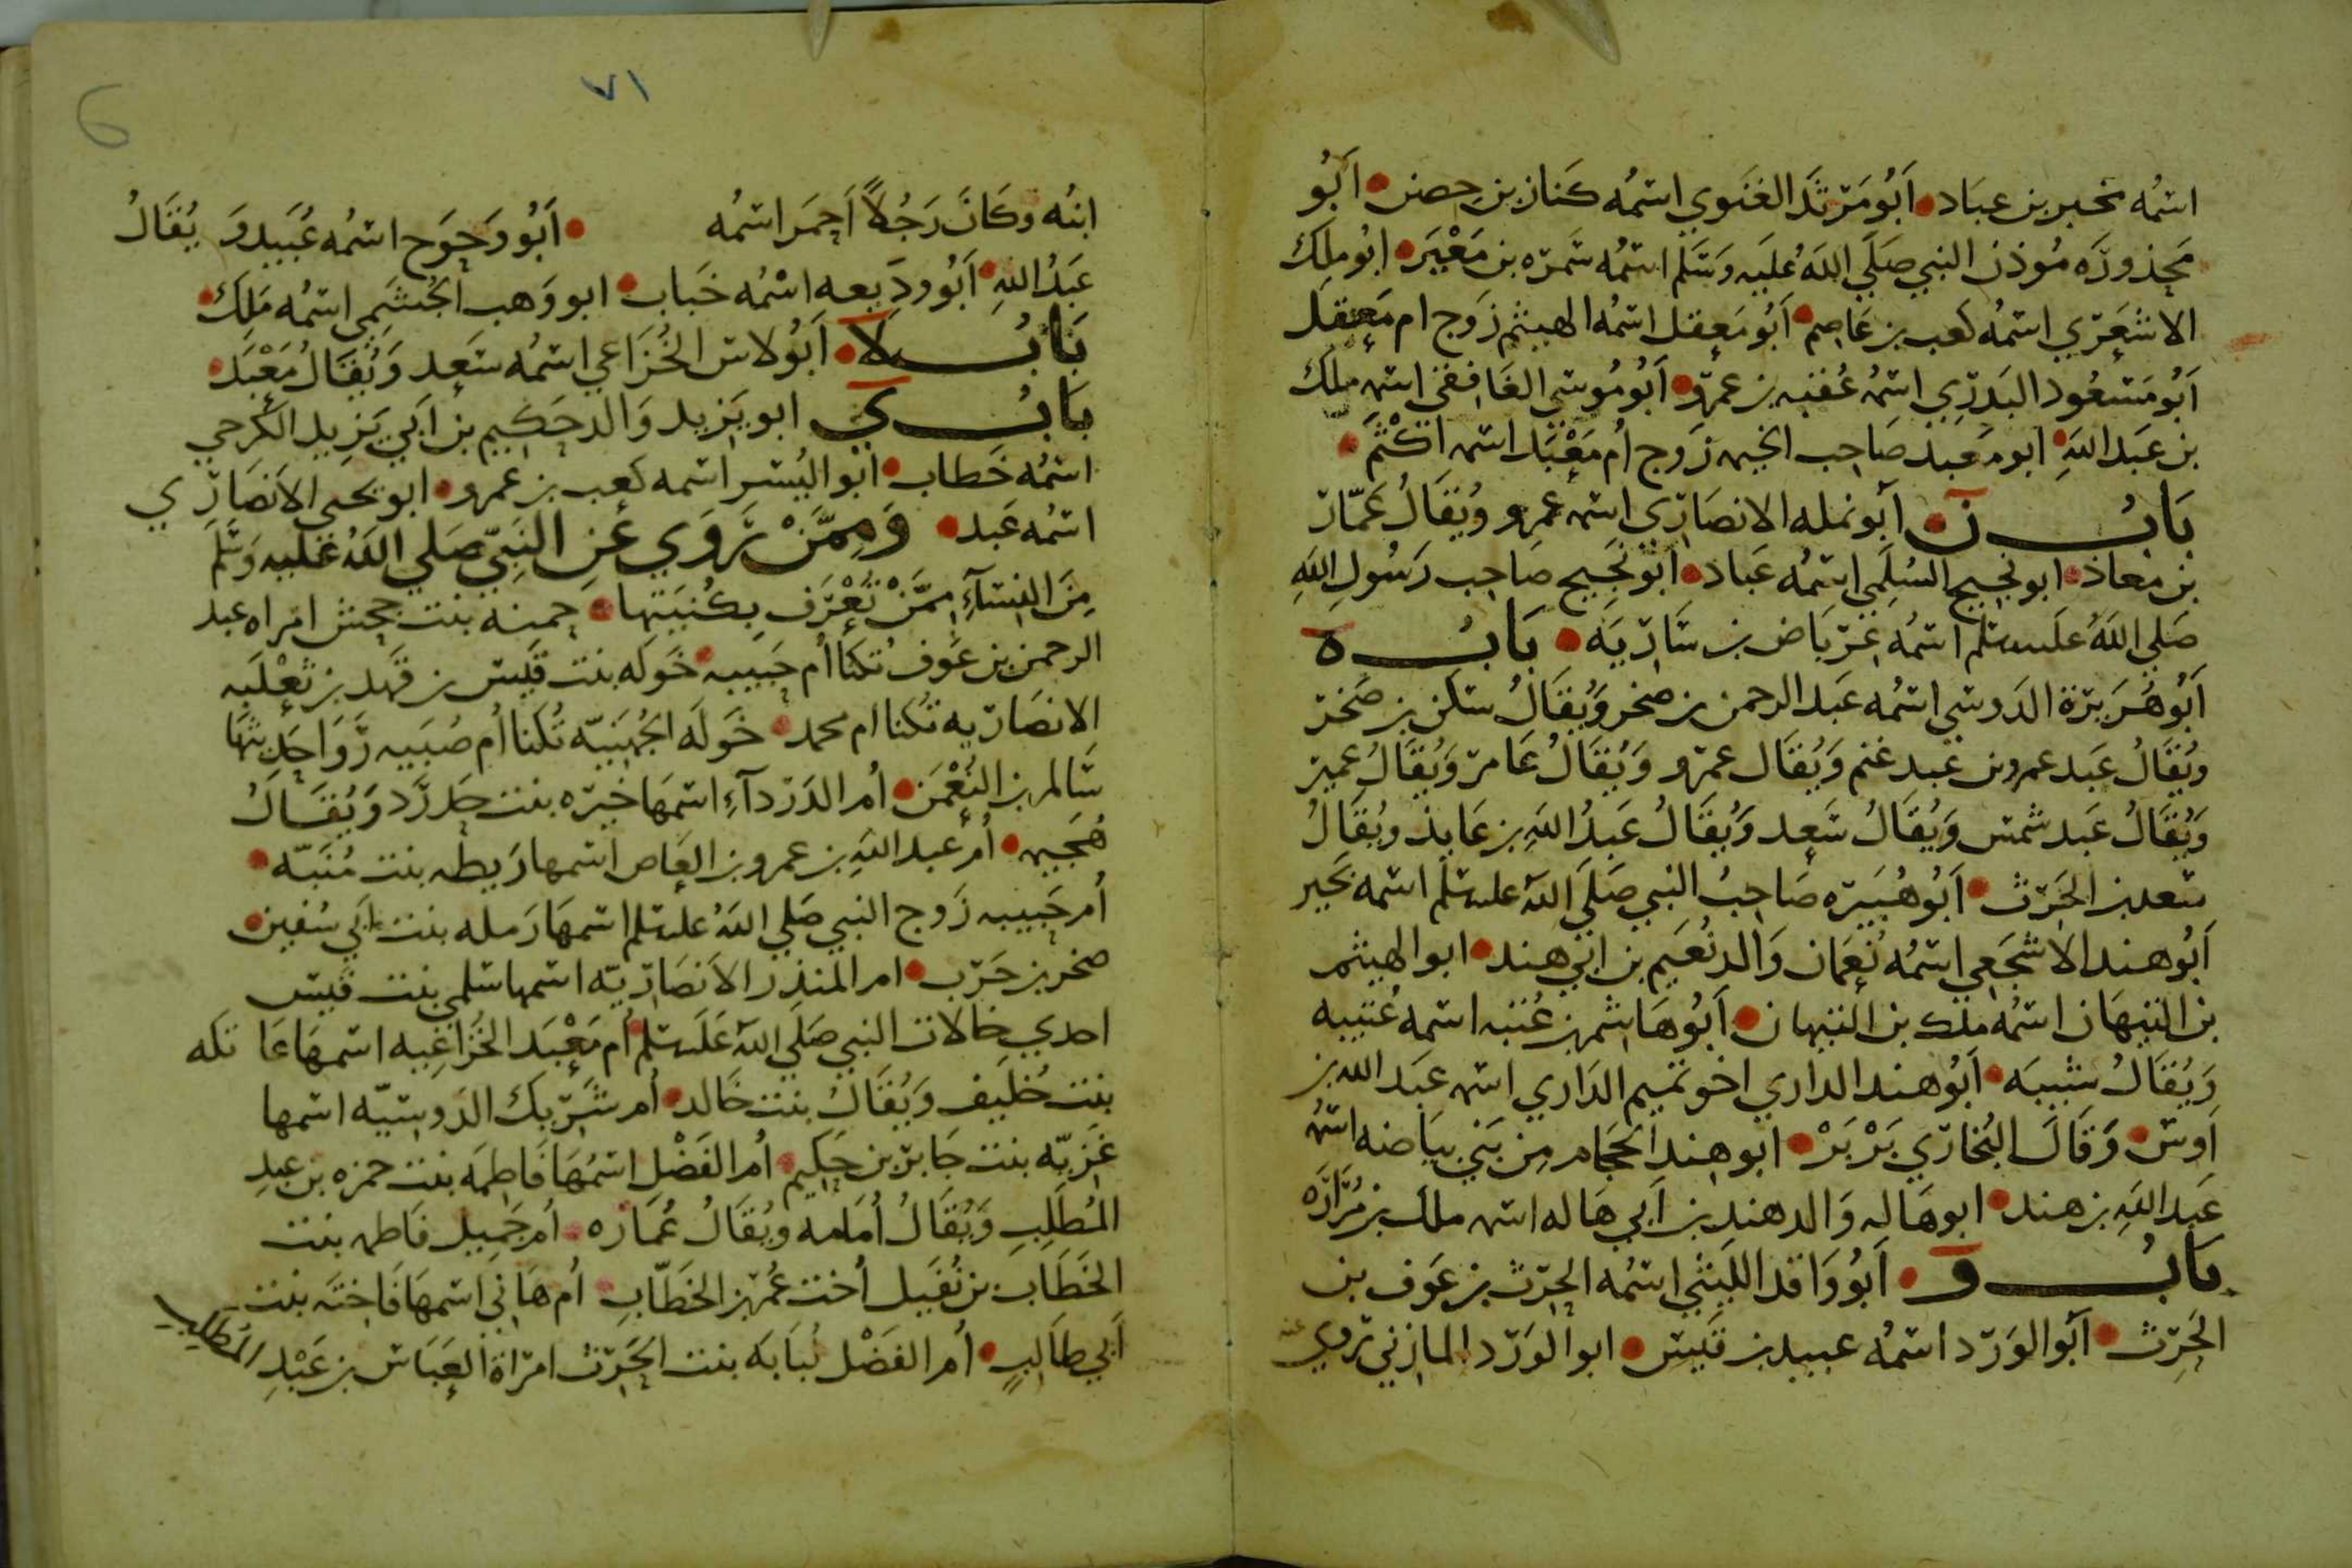 اسمُه نخير بن عبَاد • اَبُو مَرْثَد الغَنَوي اسمُه كَناز بن حِصن • اَبُو
مَحذورَه مُوذن النبي صَلَي اللهُ عَليَه وَسَلم اسمُه سَمرَه بن مَعْيَر • ابُو ملِك
الاشعَرَي اسمُه كعب بن عَاصِم • اَبُو مَعِقل اسمُه الهيثم زَوج ام مَعِقل
اَبُو مَسعُود البَدرِي اسمُه عُقبَه بن عمرو • اَبُو مُوسَي الغَافِقي اسمه ملك
بن عَبد اللهَ • ابو معبد صَاحِب الخيمه زَوج اُم مَعْبَد اسمه اَكْثَم •
بَابُ ن • اَبو نمله الانصَارِي اسمه عمرو وُيقَالُ عَمّار
بن معاذ • ابو نجيح السُلَمي اسمُه عَباد • اَبو نجَيح صَاحِب رَسُولِ اللهِ
صَلي اللهُ عَليه سلم اسمُه عِرَبَاض بن سَارِيَه • بَابُ ه
اَبُو هُرَيرَة الدَوسي اسمُه عَبد الرحمن بن صخر وَيُقَالُ سَكن بن صَخر
وَيُقَالُ عَبد عمرو بن عَبد غنم وَيُقَال عمرو وَيُقَالُ عَامر وَيُقَالُ عمير
وَيُقَالُ عَبد شمس وَيُقَالُ سَعِد وَيُقَالُ عَبدُ اللهِ بن عَايذ ويُقَالُ
سعد بن الحَرث • اَبُو هُبَيَره صَاحِبُ النبي صَلَي اللهُ عليه سلم اسمه نَحير
اَبُو هند الاشجَعِي اسمُه نُعِمَان وَالد نُعَيم بن ابي هند • ابو الهيثم
بن التيهَان اسمُه ملك بن التيهان • اَبُو هَاشم بن عُتبه اسمه عُتيبه
وَيُقَالُ شيبَه • اَبُو هند الداري اخو تميم الدَاري اسمه عبَد الله بن
اَوس • وَقَالَ البُخارَي بَرْ بَرْ • اَبو هند الحَجَام مِن بَني بيَاضه اسمُه
عَبد اللهِ بن هند • ابو هَاله وَالد هند بن اَبي هَاله اسمه ملك بن زُرَارَه
بَابُ و • اَبُو وَاقد الليثي اسمُه الحِرَث بن عَوف بن
الحَرث • اَبو الوَرد اسمُه عبيد بن قَيس • ابو الوَرَد المازني رَوي عنه
٧١
6
ابنُه وكَانَ رَجُلاً اَحِمَر اسمُه • اَبُو وَحوَح اسمُه عُبَيد وَيُقَالُ
عَبدُ اللهِ • اَبُو ودِيعه اسْمُه خَباب • ابو وَهب الجُشَمِي اسمُه مَلِك •
بَابُ لا • اَبُو لاس الخُزَاعي اسمُه سَعِد وَيُقَالُ مَعْبَد •
بَابُ ي ابو يَزيد وَالد حَكِيم بن اَبي يَزِيد الكَرجي
اسمُه خَطاب • اَبو اليُسر اسمه كعب بن عمرو • ابو يحيي الاَنصَارَي
اسمُه عَبد • وَمِمَّنْ رَوَي عَن النَبِيّ صَلي اللهُ عَليه وَسَلَم
مِنَ النِسَآءِ مِمَّنْ تَعْرَف بِكُنيَتها • حِمنه بنت جحش امراه عبد
الرحمن بن عَوف تُكَنا اُم حَبيبه • خَوله بنت قَيس بن قَهد بن ثَعْلَبه
الانصَارَيه تُكنا ام محمد • خَولَه الجُهَنيّه تُكَنا اُم صُبَيه رَوَا حَدِيثهَا
سَالم بن النُعْمَن • اُم الدَرْدآءِ اسمهَا خيَره بنت حَدرَد وَيُقَالُ
هُجَيمه • اُم عبد اللهِ بن عمرو بن العَاص اسمها رَيطه بنت مُنَبّه •
اُم حَبيبه زَوج النبي صَلي اللهُ عليه سلم اسمهَا رَمله بنت اَبي سُفين •
صخر بن حَرب • ام المنذر الاَنصَارِيّه اسمها سَلمي بنت قيس
احدي خالات النبي صَلَي اللهُ عَلَيه سلم • اُم مَعْبَد الخُزَاعِيه اسمهَا عَاتكَه
بنت خُليَف وَيُقَالُ بنت خَالد • اُم شَرِيك الدَوسيّه اسمها
غَزيّه بنت جَابر بن حَكِيم • اُم الفَضْل اسمُهَا فَاطِمَه بنت حمزه بن عبدِ
المُطَلِبِ وَيُقَالُ اُمَامه ويُقَالُ عُمَارَه • اُم جَمِيل فَاطمه بنت
الخَطَاب بن نُفَيل اُخت عُمَر بن الخَطَّابِ • اُم هَاني اسمهَا فَاخِتَه بنت
اَبي طَالِبٍ • اُم الفَضْل لُبَابَه بنت الحَرِث امرَاة العِبَاس بن عَبْدِ المطَلِب